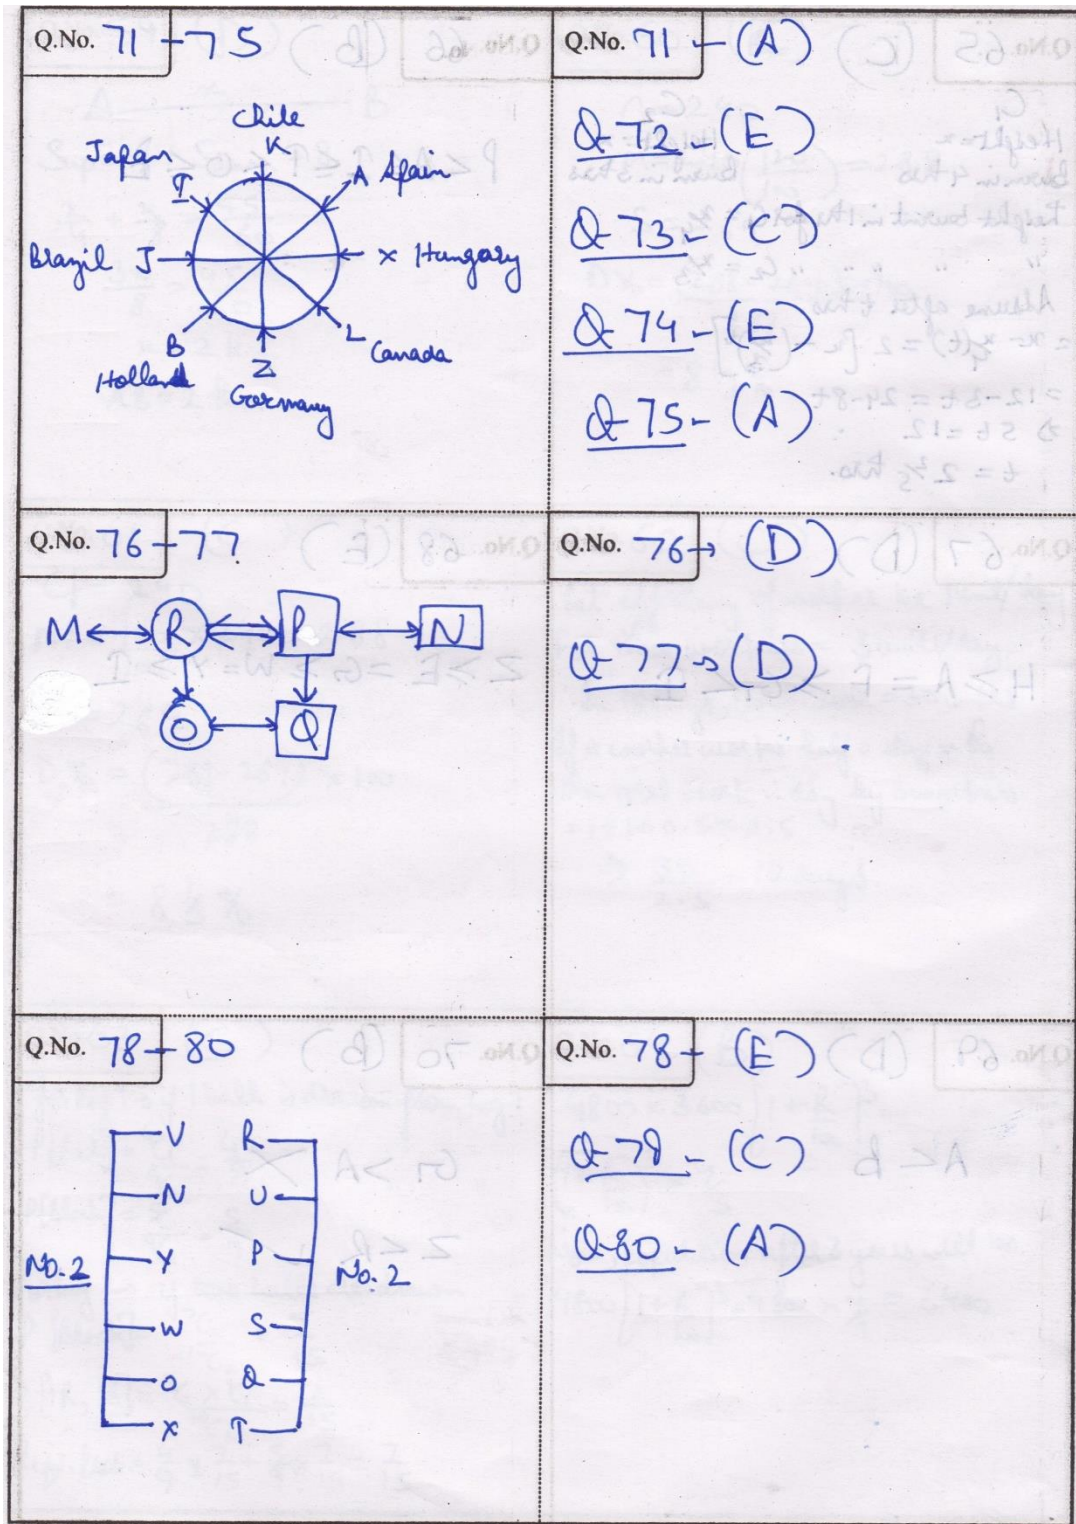 Q.No. 71-75
Chile
K
Japan
I
A Spain
Brazil J
X Hungary
B
Holland
Z
Germany
L
Canada
Q.No. 71-(A)
Q-72-(E)
Q-73-(C)
Q-74-(E)
Q-75-(A)
Q.No. 76-77
M R P N
O Q
Q.No. 76→ (D)
Q-77→(D)
Q.No. 78-80
V R
N U
No.2 Y P No.2
W S
O Q
X T
Q.No. 78- (E)
Q-79- (C)
Q-80- (A)